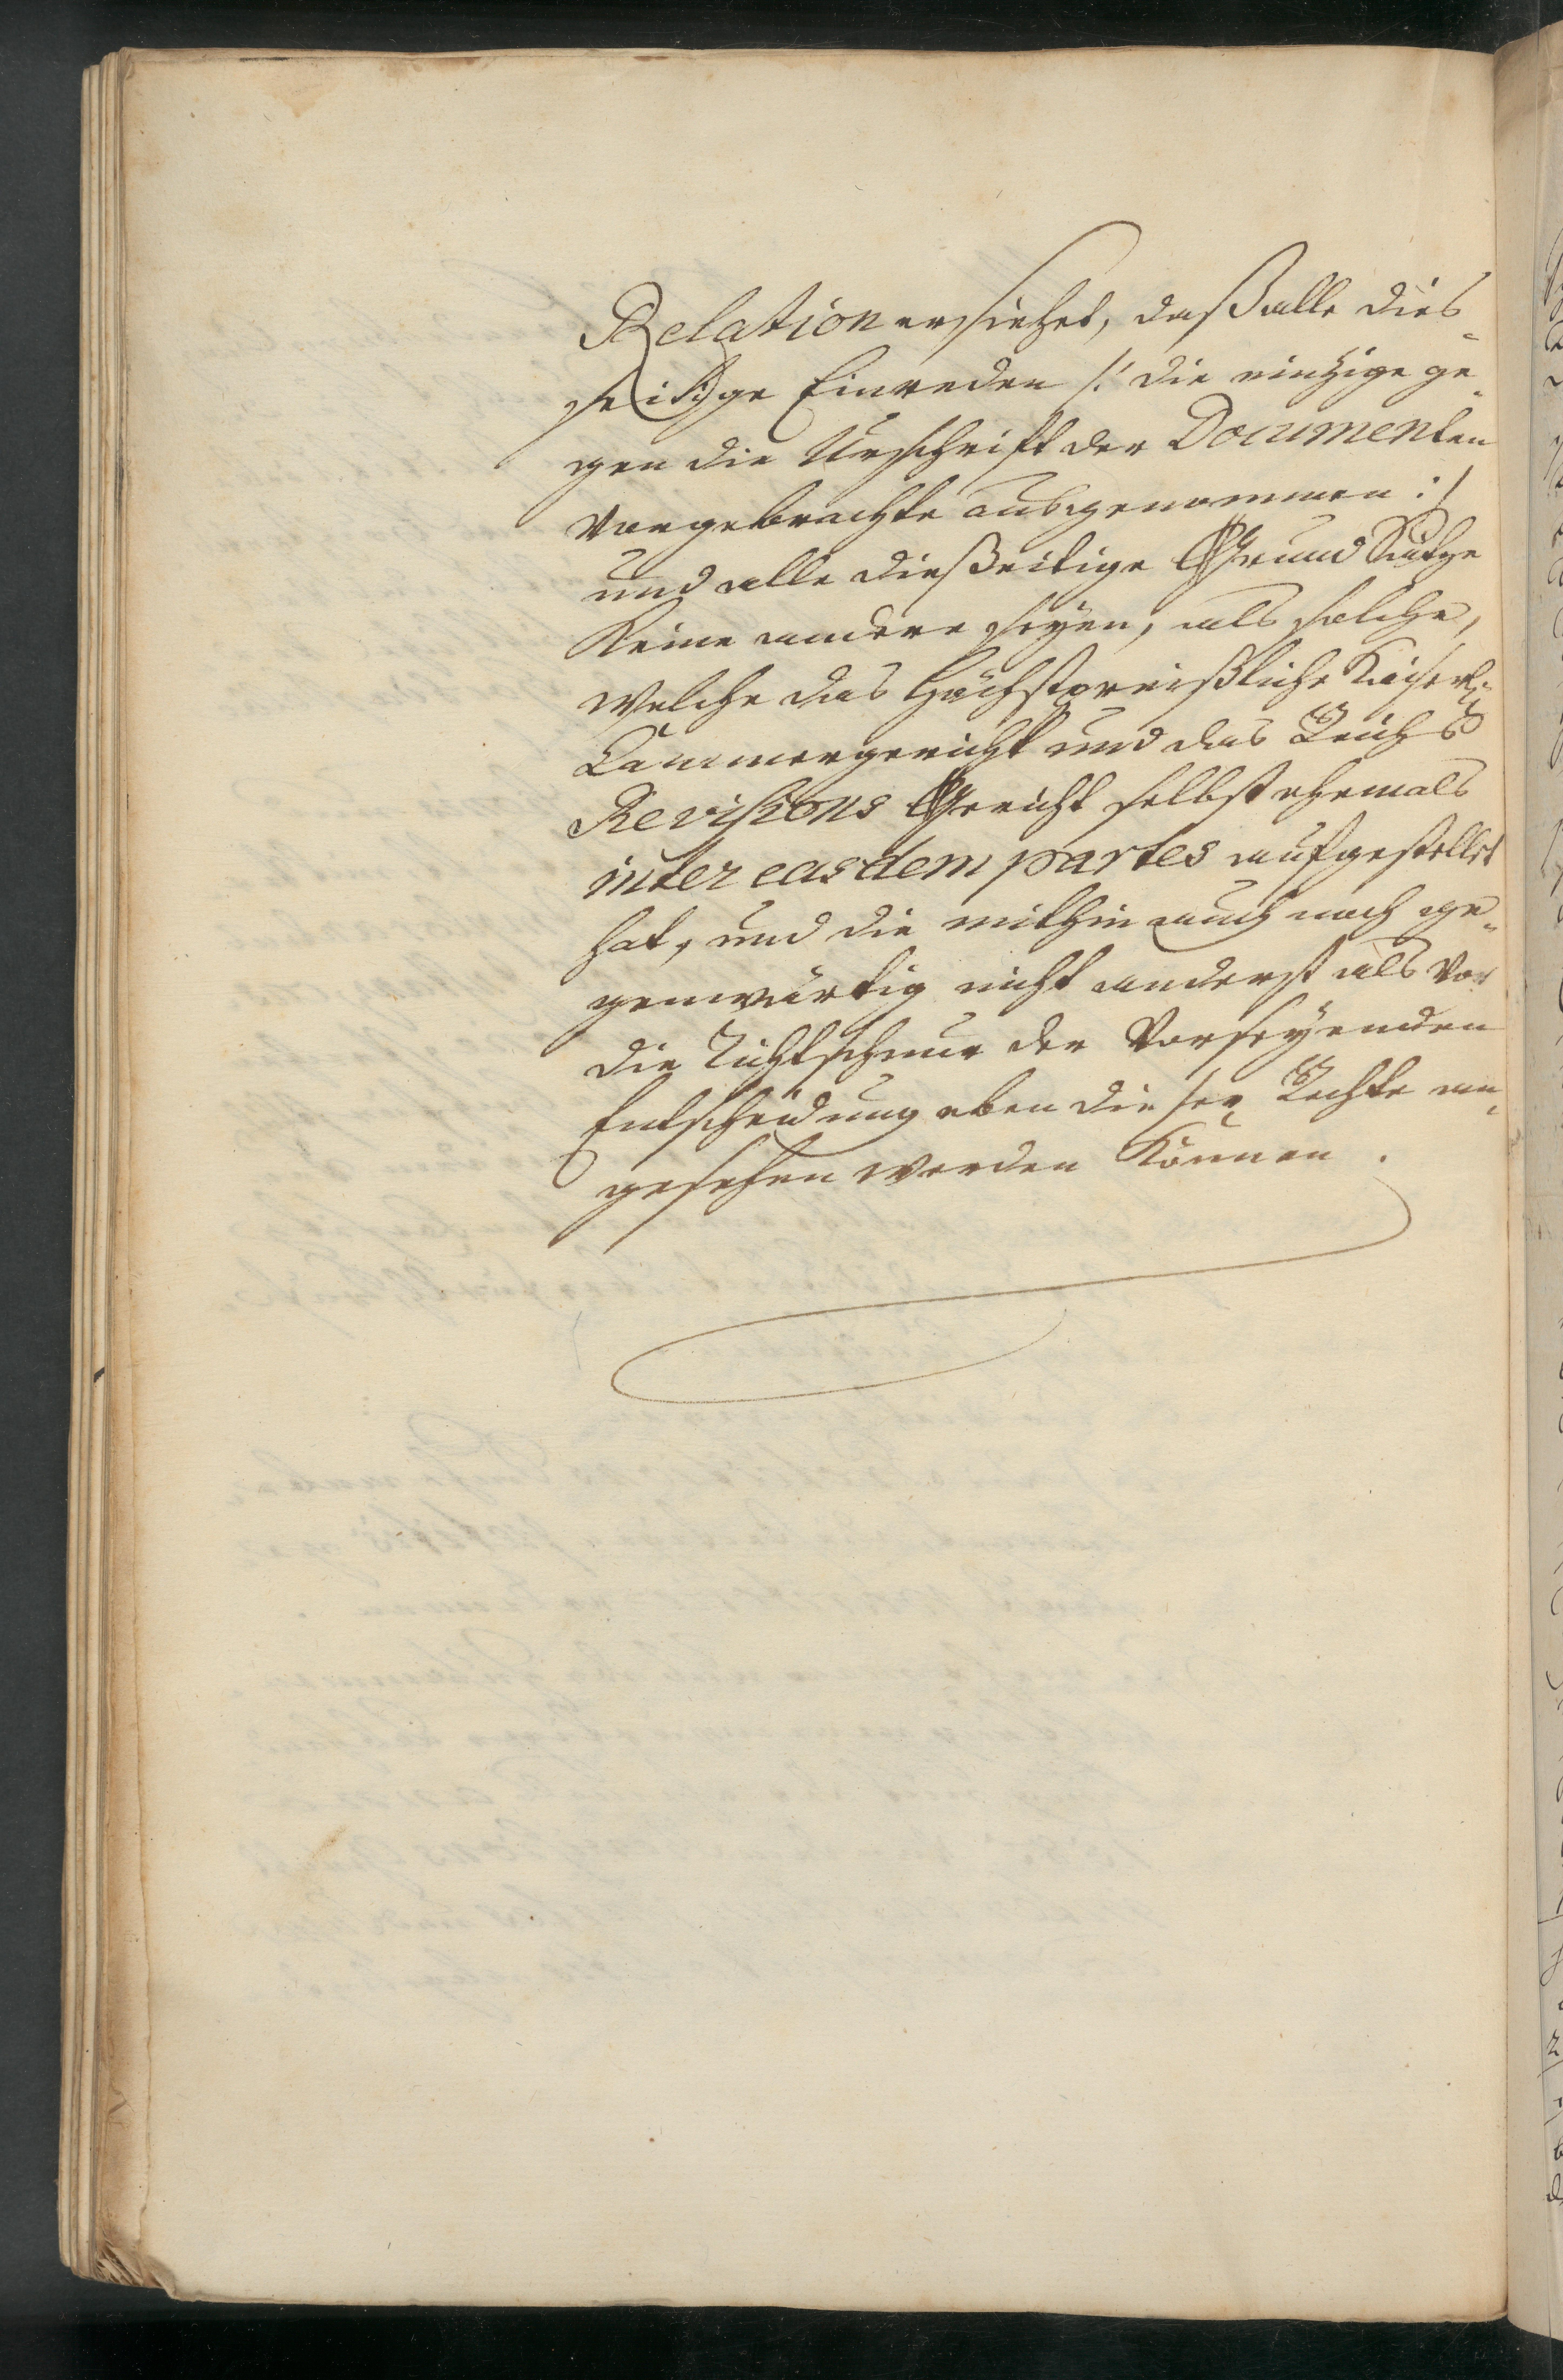 Relation ersiehet, daß alle dies-
seitige Einreden /: die eintzige ge-
gen die Urschrift der Documenten
vorgebrachte ausgenommen :/
und alle dießeitige Grund Sätze
keine andere seyen, als solche,
welche das Höchstpreißliche Kaiserl:
Cammergericht und das Reichs
Revisions Gericht selbst ehemals
inter easdem partes aufgestellet
hat, und die mithin auch noch ge-
genwärtig nicht anderst als vor
die Richtschnur der vorseyenden
Entscheidung eben dieser Rechte an-
gesehen werden können.